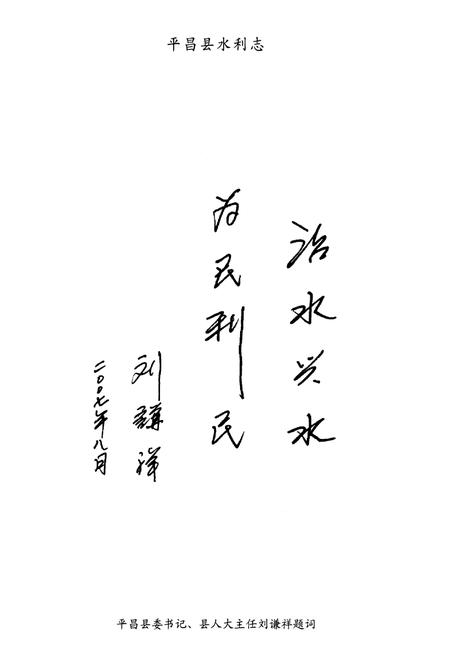 平昌县水利志
治水兴水
为民利民
刘谦祥
二00七年八月
平昌县委书记、县人大主任刘谦祥题词